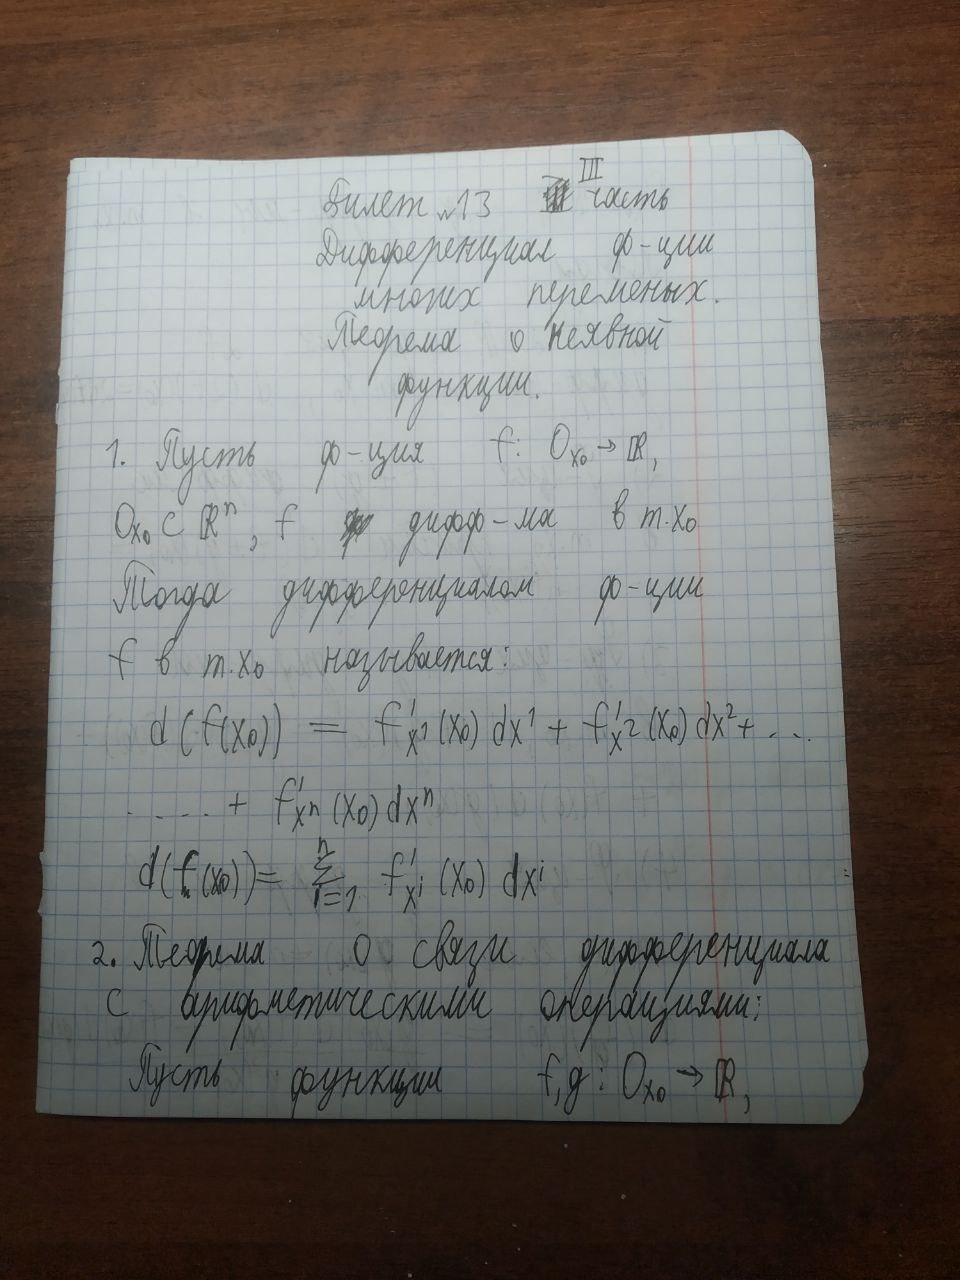 Билет №13 III часть
Дифференциал ф-ции
многих переменых.
Теорема о неявной
функции.
1. Пусть ф-ция f: Oₓ₀ → ℝ,
Oₓ₀ ⊂ ℝⁿ, f дифф-ма в т. x₀
Тогда дифференциалом ф-ции
f в т. x₀ называется:
d(f(x₀)) = f'ₓ¹(x₀) dx¹ + f'ₓ²(x₀) dx² + ...
..... + f'ₓⁿ(x₀) dxⁿ
d(f(x₀)) = ∑ⁿᵢ₌₁ f'ₓⁱ(x₀) dxⁱ
2. Теорема о связи дифференциала
с арифметическими операциями:
Пусть функции f, g: Oₓ₀ → ℝ,